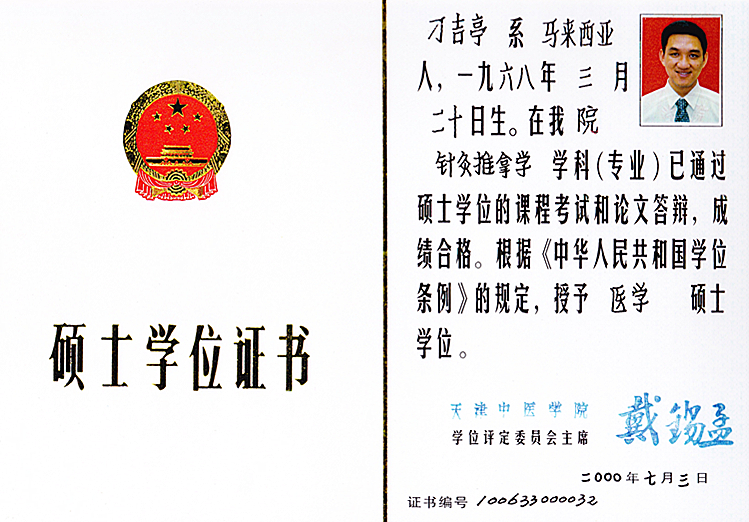 硕士学位证书
刁吉亭 系 马来西亚
人，一九六八年 三 月
二十日生。在我 院
针灸推拿学 学科(专业)已通过
硕士学位的课程考试和论文答辩，成
绩合格。根据《中华人民共和国学位
条例》的规定，授予 医学 硕士
学位。
天津中医学院
学位评定委员会主席
戴锡孟
二000年七月三日
证书编号 100633000032